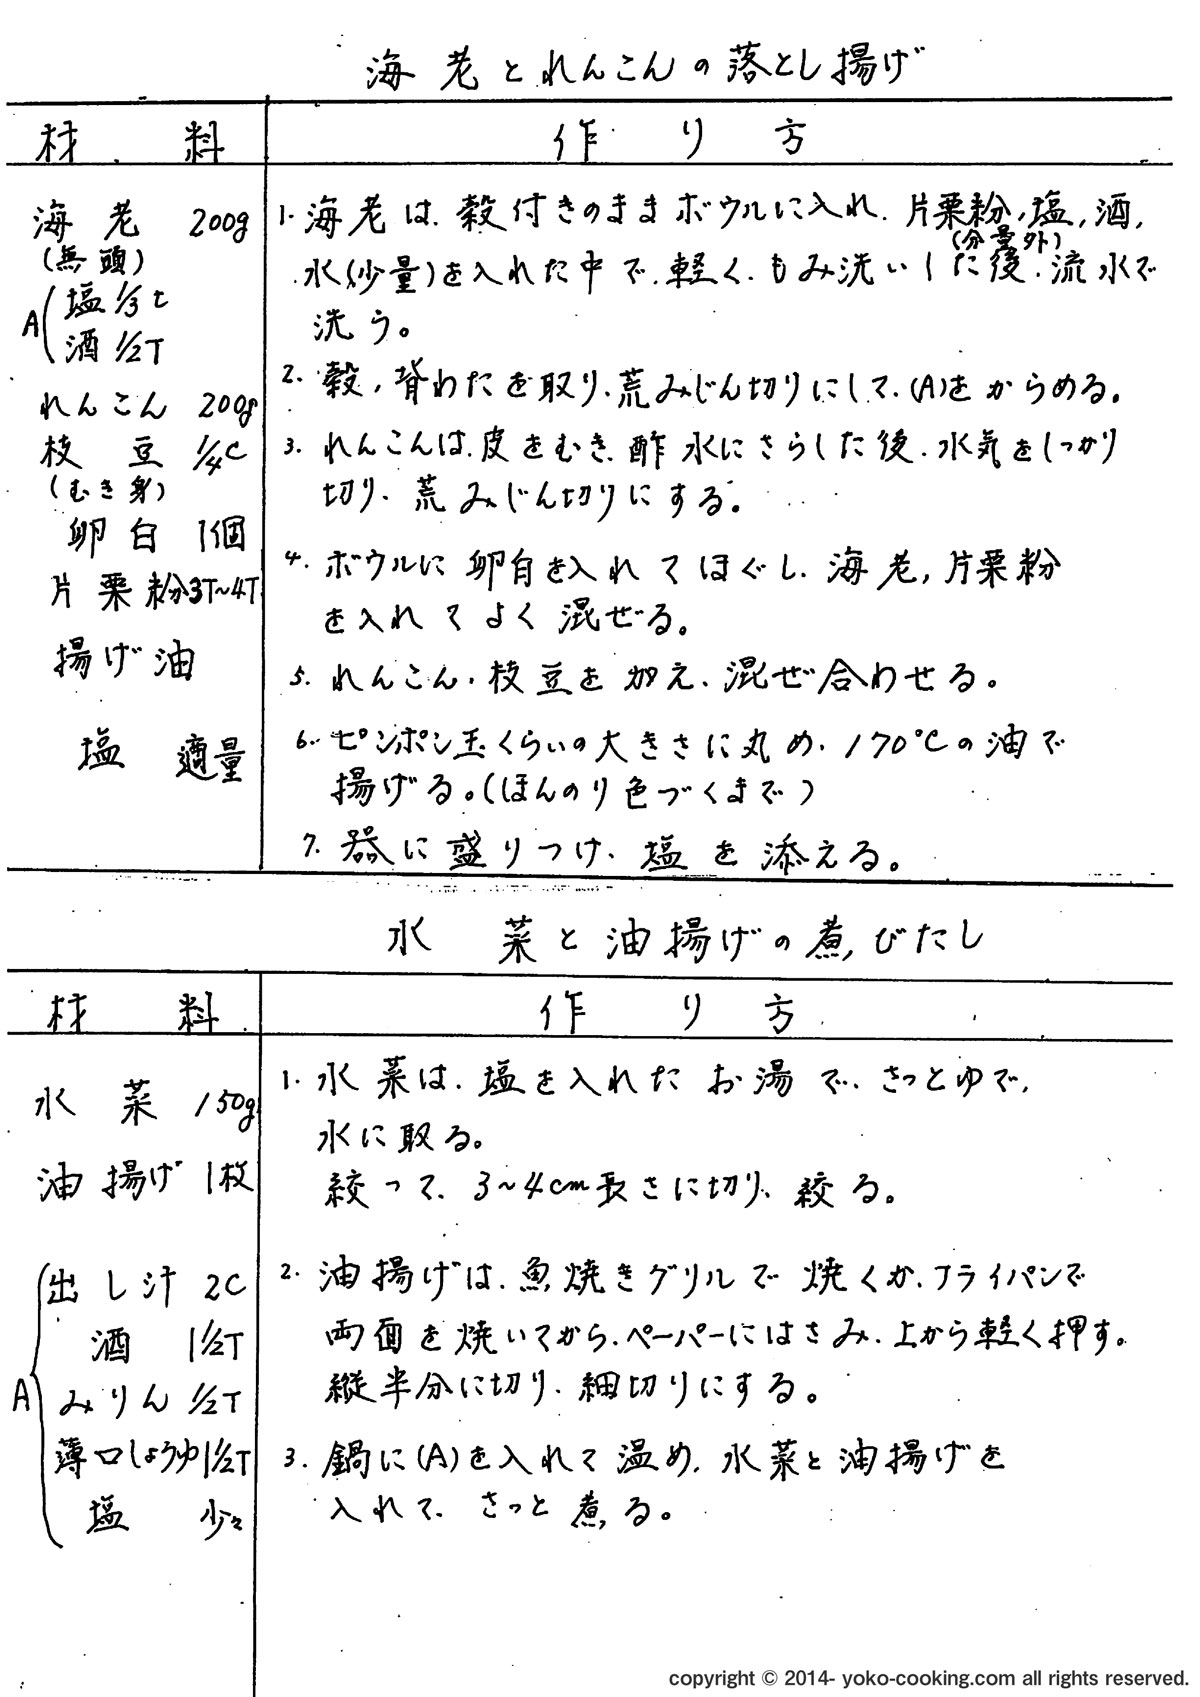 海老とれんこんの落とし揚げ
材料
作り方
海老 200g
(無頭)
A
塩 1/3t
酒 1/2T
れんこん 200g
枝豆 1/4C
(むき身)
卵白 1個
片栗粉 3T~4T
揚げ油
塩 適量
1. 海老は、殻付きのままボウルに入れ、片栗粉,塩,酒,
(分量外)
水(少量)を入れた中で、軽く、もみ洗いした後、流水で
洗う。
2. 殻,背わたを取り、荒みじん切りにして、(A)をからめる。
3. れんこんは、皮をむき、酢水にさらした後、水気をしっかり
切り、荒みじん切りにする。
4. ボウルに卵白を入れてほぐし、海老,片栗粉
を入れてよく混ぜる。
5. れんこん、枝豆を加え、混ぜ合わせる。
6. ピンポン玉くらいの大きさに丸め、170℃の油で
揚げる。(ほんのり色づくまで)
7. 器に盛りつけ、塩を添える。
水菜と油揚げの煮びたし
材料
作り方
水菜 150g
油揚げ 1枚
A
出し汁 2C
酒 1 1/2T
みりん 1/2T
薄口しょうゆ 1 1/2T
塩 少々
1. 水菜は、塩を入れたお湯で、さっとゆで,
水に取る。
絞って、3~4cm長さに切り、絞る。
2. 油揚げは、魚焼きグリルで焼くか、フライパンで
両面を焼いてから、ペーパーにはさみ、上から軽く押す。
縦半分に切り、細切りにする。
3. 鍋に(A)を入れて温め、水菜と油揚げを
入れて、さっと煮る。
copyright © 2014- yoko-cooking.com all rights reserved.